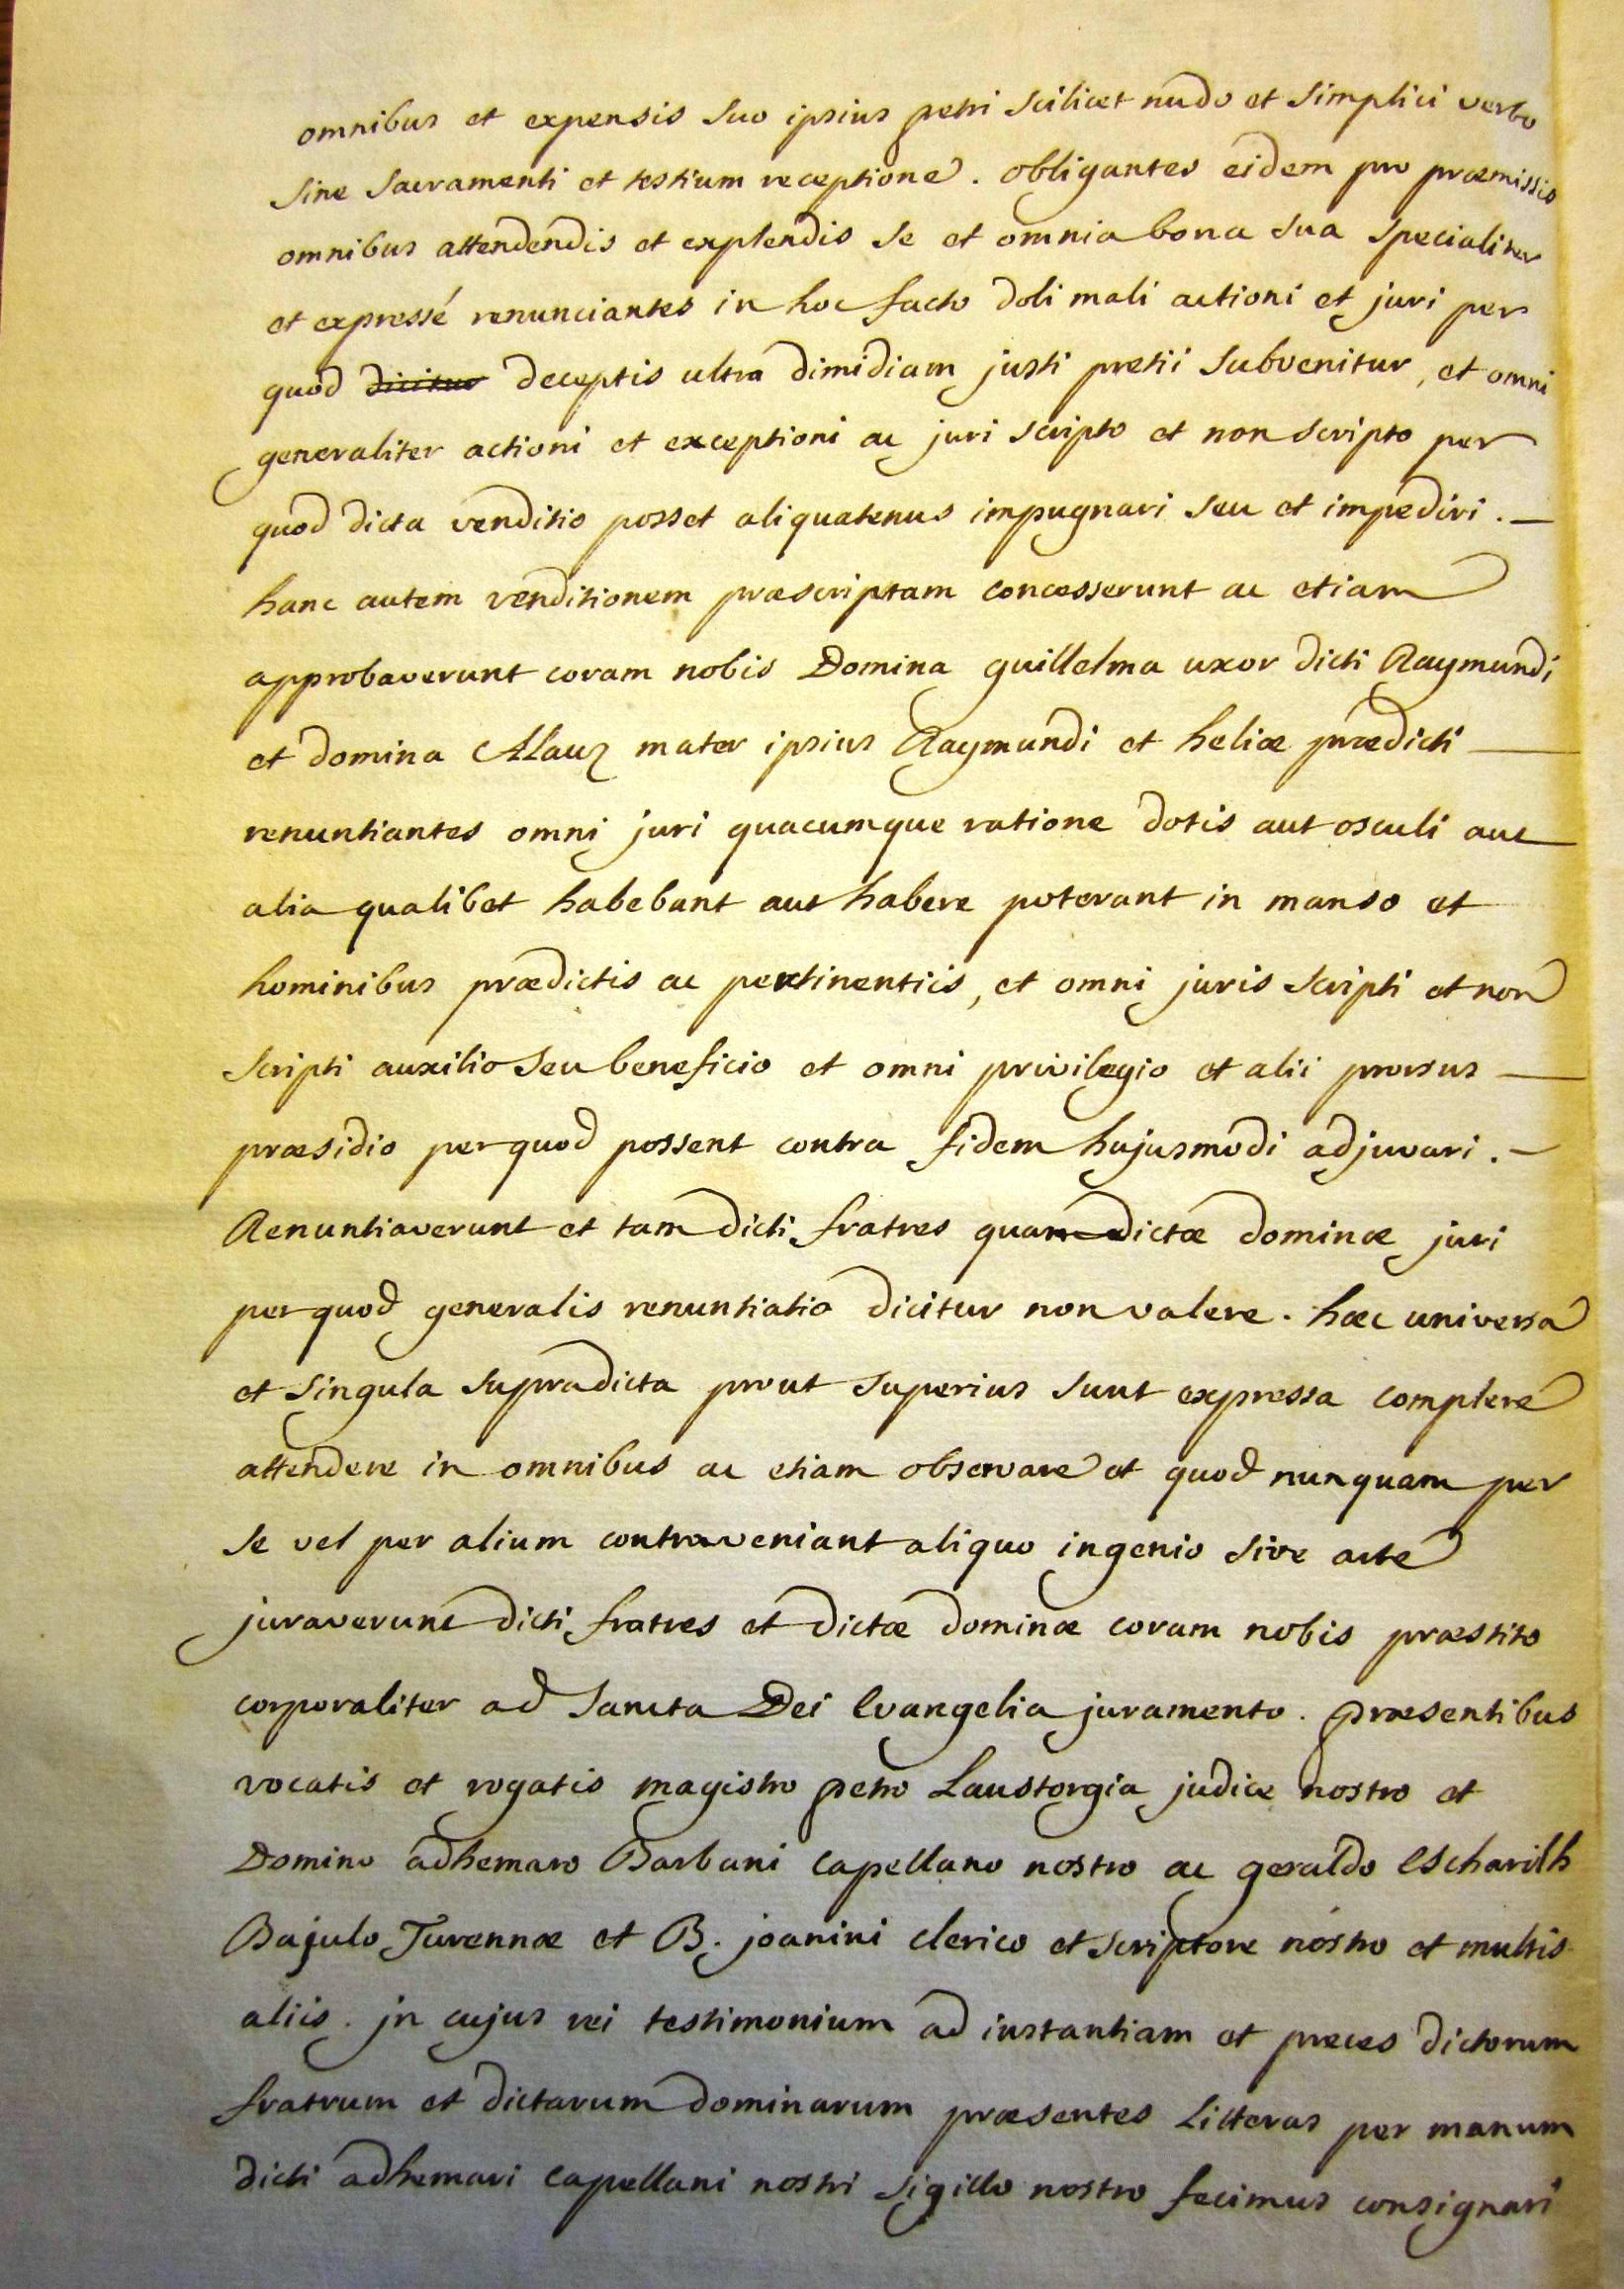 omnibus et expensis suo ipsius petri scilicet nudo et simplici verbo
sine sacramenti et testium receptione. obligantes eidem pro præmissis
omnibus attendendis et explendis se et omnia bona sua specialiter
et expressé renunciantes in hoc facto doli mali actioni et juri per
quod dicitur deceptis ultra dimidiam justi pretii subvenitur, et omni
generaliter actioni et exceptioni ac juri scripto et non scripto per
quod dicta venditio posset aliquatenus impugnari seu et impediri. —
hanc autem venditionem præscriptam concesserunt ac etiam
approbaverunt coram nobis Domina guillelma uxor dicti Raymundi
et domina Alauz mater ipsius Raymundi et heliæ prædicti —
renuntiantes omni juri quacumque ratione dotis aut osculi aut
alia qualibet habebant aut habere poterant in manso et
hominibus prædictis ac pertinentiis, et omni juris scripti et non
scripti auxilio seu beneficio et omni privilegio et alii prorsus —
præsidio per quod possent contra fidem hujusmodi adjuvari. —
Renuntiaverunt et tam dicti fratres quam dictæ dominæ juri
per quod generalis renuntiatio dicitur non valere. hæc universa
et singula supradicta prout superius sunt expressa complere
attendere in omnibus ac etiam observare et quod nunquam per
se vel per alium contraveniant aliquo ingenio sive arte
juraverunt dicti fratres et dictæ dominæ coram nobis præstito
corporaliter ad sancta Dei Evangelia juramento. præsentibus
vocatis et rogatis magistro petro Laustorgia judice nostro et
Domino adhemaro Barbani capellano nostro ac geraldo Escharilh
Bajulo Turennæ et B. joanini clerico et scriptore nostro et multis
aliis. jn cujus rei testimonium ad instantiam et preces dictorum
fratrum et dictarum dominarum præsentes Litteras per manum
dicti adhemari capellani nostri sigillo nostro fecimus consignari